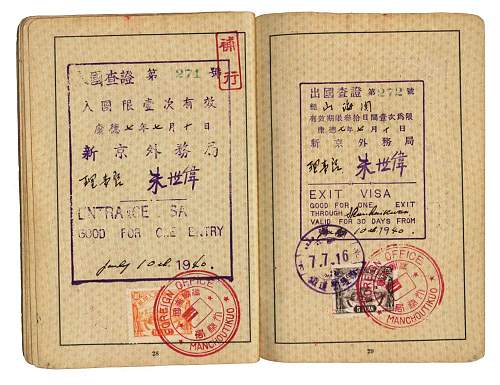 補行
入國查證 第 271 號
入國限壹次有效
康德七年七月十日
新京外務局
理事官 朱世偉
ENTRANCE VISA
GOOD FOR ONE ENTRY
July 10th 1940.
FOREIGN OFFICE
MANCHOUTIKUO
28
出國查證 第 272 號
經 山海關
有效期限叁拾日間壹次為限
康德七年七月十日
新京外務局
理事官 朱世偉
EXIT VISA
GOOD FOR ONE EXIT
THROUGH Shanhaikwan
VALID FOR 30 DAYS FROM
10th 1940
7.7.16
FOREIGN OFFICE
MANCHOUTIKUO
29